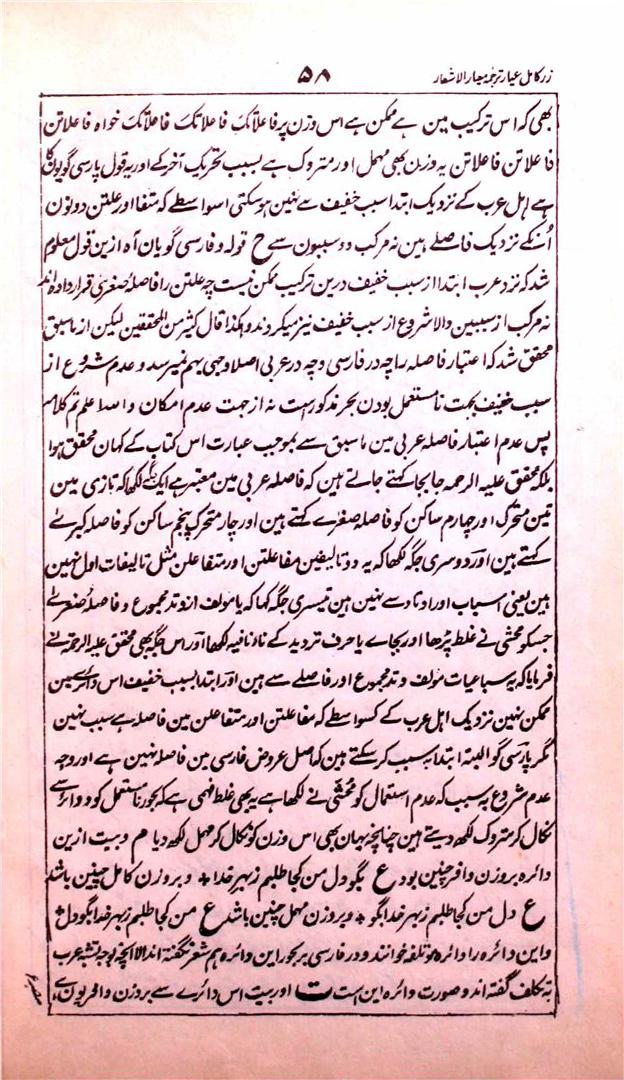 زر کامل عیار ترجمہ معیار الاشعار
۵۸
بھی کہ اس ترکیب مین ہے ممکن ہے اس وزن پر فاعلاتک فاعلاتک فاعلاتک خواہ فاعلاتن
فاعلاتن فاعلاتن یہ وزن بھی مہمل اور متروک ہے بسبب تحریک آخر کے اور یہ قول پارسی گویون کا
ہے اہل عرب کے نزدیک ابتدا سبب خفیف سے نہین ہو سکتی اسواسطے کہ متفا اور علتن دونون
اُنکے نزدیک فاصلے ہین نہ مرکب دو سببون سے ح قولہ و فارسی گویان آہ ازین قول معلوم
شد کہ نزد عرب ابتدا از سبب خفیف درین ترکیب ممکن نیست چہ علتن را فاصلۂ صغریٰ قرار دادہ اند
نہ مرکب از سببین والا شروع از سبب خفیف نیز میکردند وہکذا قال کثیر من المحققین لیکن از ماسبق
محقق شد کہ اعتبار فاصلہ را چہ در فارسی وچہ در عربی اصلا وجہی بہم نمیرسد و عدم شروع از
سبب خفیف بجہت نامستعمل بودن بحر مذکورست نہ از جہت عدم امکان واللہ اعلم تم کلامہ
پس عدم اعتبار فاصلہ عربی مین ماسبق سے بموجب عبارت اس کتاب کے کہان محقق ہوا
بلکہ محقق علیہ الرحمہ جابجا کہتے جاتے ہین کہ فاصلہ عربی مین معتبر ہے ایک جگہ لکھا کہ تازی مین
تین متحرک اور چہارم ساکن کو فاصلہ صغرے کہتے ہین اور چار متحرک پنجم ساکن کو فاصلہ کبرے
کہتے ہین اور دوسری جگہ لکھا کہ یہ دو تالیفین مفاعلتن اور متفاعلن مثل تالیفات اول نہین
ہین یعنی اسباب اور اوتاد سے نہین ہین تیسری جگہ کہا کہ یا مولف از وتد مجموع و فاصلۂ صغرے
جسکو محشی نے غلط پڑھا اور بجاے یا حرف تردید کے تاء نافیہ لکھا اور اس جگہ بھی محقق علیہ الرحمہ نے
فرمایا کہ یہ سباعیات مؤلف وتد مجموع اور فاصلے سے ہین اور ابتدا بسبب خفیف اس دائرے مین
ممکن نہین نزدیک اہل عرب کے کسواسطے کہ مفاعلتن اور متفاعلن مین فاصلہ ہے سبب نہین
مگر پارسی گو البتہ ابتدا بہ سبب کر سکتے ہین کہ اصل عروض فارسی مین فاصلہ نہین ہے اور وجہ
عدم شروع بہ سبب کہ عدم استعمال کو محشی نے لکھا ہے یہ بھی غلط فہمی ہے کہ بحور نا مستعمل کو دوائر سے
نکال کر متروک لکھ دیتے ہین چنانچہ یہان بھی اس وزن کو نکال کر مہمل لکھ دیا م و بیت ازین
دائرہ بر وزن وافر چنین بود ع بگو دل من کجا طلبم ز بہر خدا + و بر وزن کامل چنین باشد
ع دل من کجا طلبم ز بہر خدا بگو + و بر وزن مہمل چنین باشد ع من کجا طلبم ز بہر خدا بگو دل +
و این دائرہ را دائرہ مؤتلفہ خوانند و در فارسی بر بحور این دائرہ ہم شعر نگفتہ اند الا آنچہ بوجہ تشبہ عرب
بہ تکلف گفتہ اند و صورت دائرہ این ست ت اور بیت اس دائرے سے بر وزن وافر یون ہے